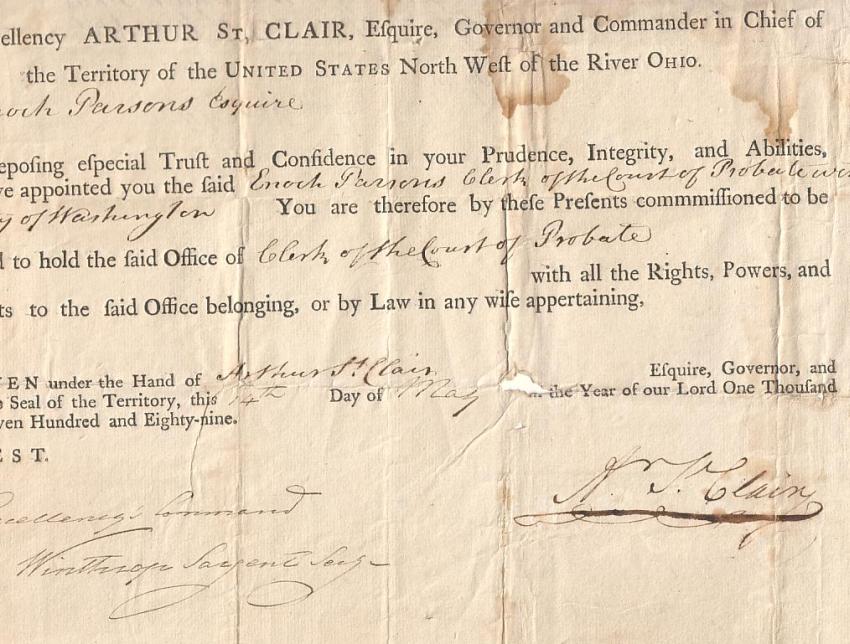 ellency ARTHUR St. CLAIR, Eſquire, Governor and Commander in Chief of
the Territory of the UNITED STATES North Weſt of the River OHIO.
noch Parsons Esquire
epoſing eſpecial Truſt and Confidence in your Prudence, Integrity, and Abilities,
ve appointed you the ſaid Enoch Parsons Clerk of the Court of Probate
y of Washington You are therefore by theſe Preſents commmiſſioned to be
d to hold the ſaid Office of Clerk of the Court of Probate
with all the Rights, Powers, and
ts to the ſaid Office belonging, or by Law in any wiſe appertaining,
EN under the Hand of Arthur St Clair Eſquire, Governor, and
e Seal of the Territory, this 14th Day of May in the Year of our Lord One Thouſand
ven Hundred and Eighty-nine.
EST.
Ar St. Clair
xcellency's Command
Winthrop Sargent Secy